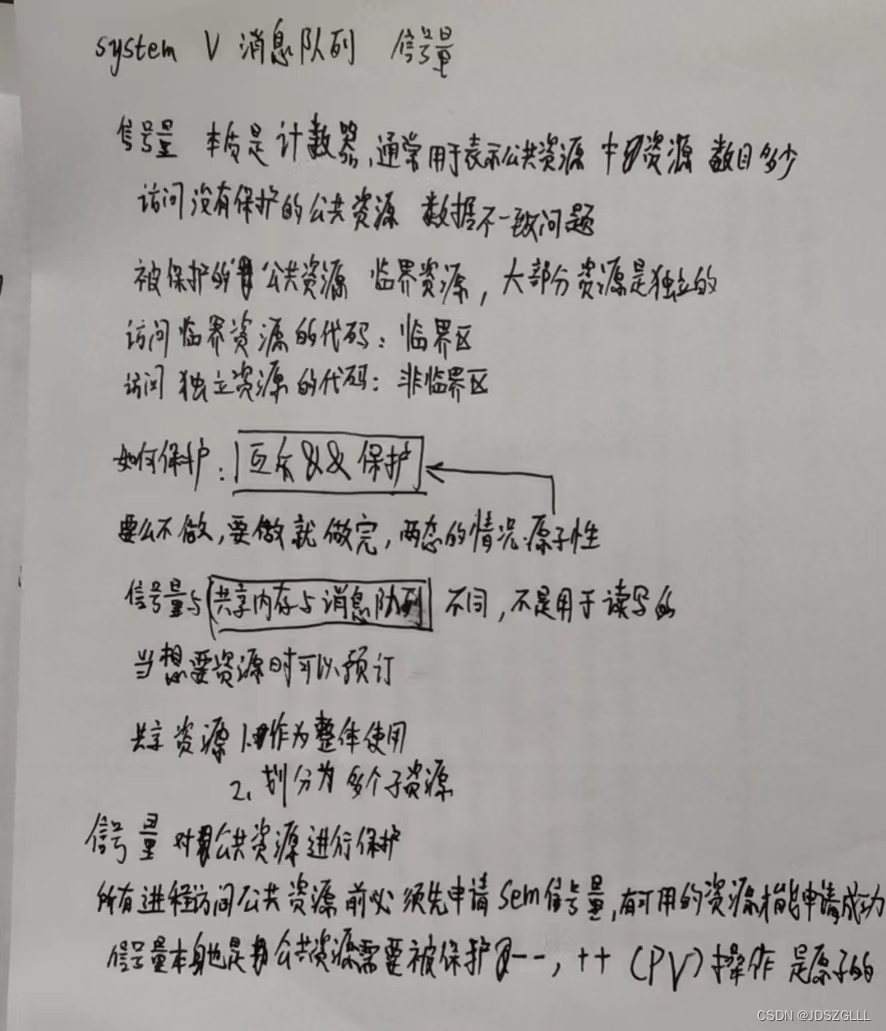 system V 消息队列 信号量
信号量 本质是计数器,通常用于表示公共资源 中资源 数目多少
访问没有保护的公共资源 数据不一致问题
被保护的公共资源 临界资源,大部分资源是独立的
访问临界资源的代码:临界区
访问独立资源的代码:非临界区
如何保护:互斥&&保护
要么不做,要做就做完,两态的情况:原子性
信号量与共享内存与消息队列 不同,不是用于读写的
当想要资源时可以预订
共享资源 1.作为整体使用
2、划分为多个子资源
信号量 对公共资源进行保护
所有进程访问公共资源前必须先申请sem信号量,有可用的资源才能申请成功
信号量本身也是公共资源需要被保护 --,++(PV)操作是原子的
CSDN @JDSZGLLL